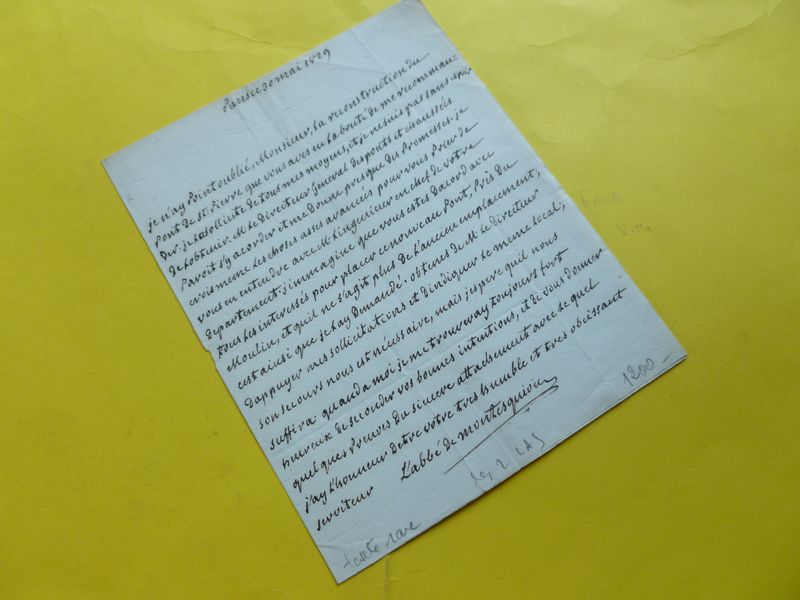 Paris ce 30 mai 1829
je n'ay point oublié, Monsieur, la reconstruction du
Pont de st. Pierre que vous aves eu la bonté de me recomman=
der je la sollicite de tous mes moyens, et je ne suis pas sans espoir
de l'obtenir. M. le directeur General des ponts et chaussées
Paroit s'y acorder et me donne presque des Promesses. je
crois meme les choses asses avancés pour vous Prier de
vous en entendre avec M. l'ingenieur en chef de votre
departement. j'immagine que vous estes d'acord avec
tous les interessés pour placer ce nouveau Pont, Près du
Moulin, et qu'il ne s'agit plus de l'ancien emplacement,
c'est ainsi que je l'ay demandé. obtenes de M. le directeur
d'appuyer mes sollicitations et d'indiquer le meme local;
son secours nous est nécéssaire, mais j'espere qu'il nous
suffira. quand a moi je me trouveray toujours fort
heureux de seconder vos bonnes intentions, et de vous donner
quelques Preuves du sincere attachement avec le quel
j'ay l'honneur d'etre votre tres humble et tres obeissant
serviteur L'abbé de montesquiou
1200 —
les 2 LAS
texte rare